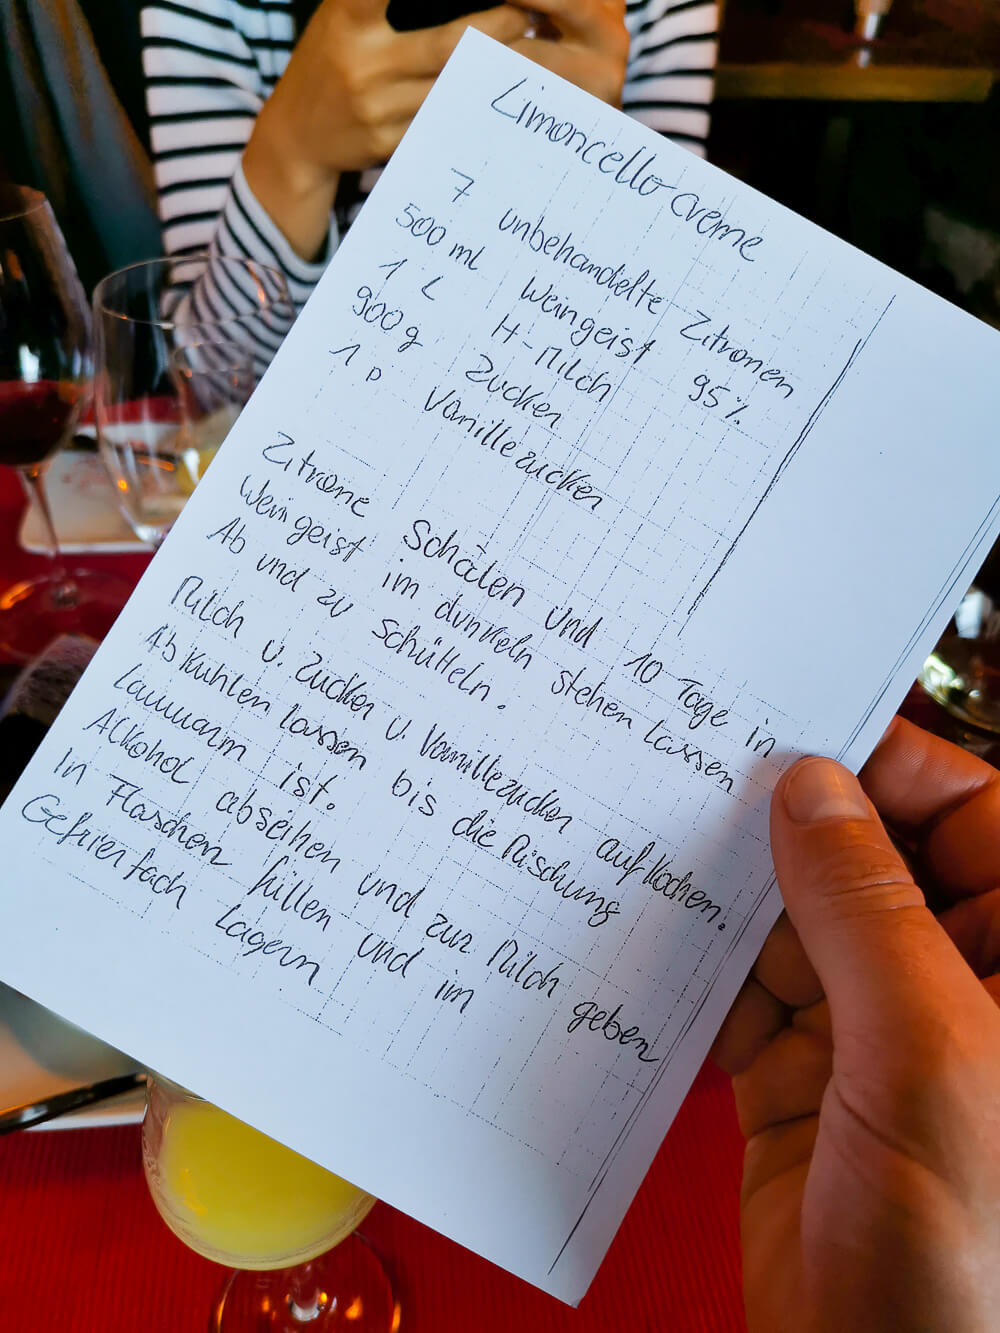 Limoncello creme
7 unbehandelte Zitronen
500 ml Weingeist 95%
1 L H-Milch
900 g Zucker
1 P. Vanillezucker
Zitrone Schälen und 10 Tage in
Weingeist im dunkeln stehen lassen
Ab und zu schütteln.
Milch u. Zucker u. Vanillezucker aufkochen.
Abkühlen lassen bis die Mischung
Lauwarm ist.
Alkohol abseihen und zur Milch geben
In Flaschen füllen und im
Gefrierfach Lagern